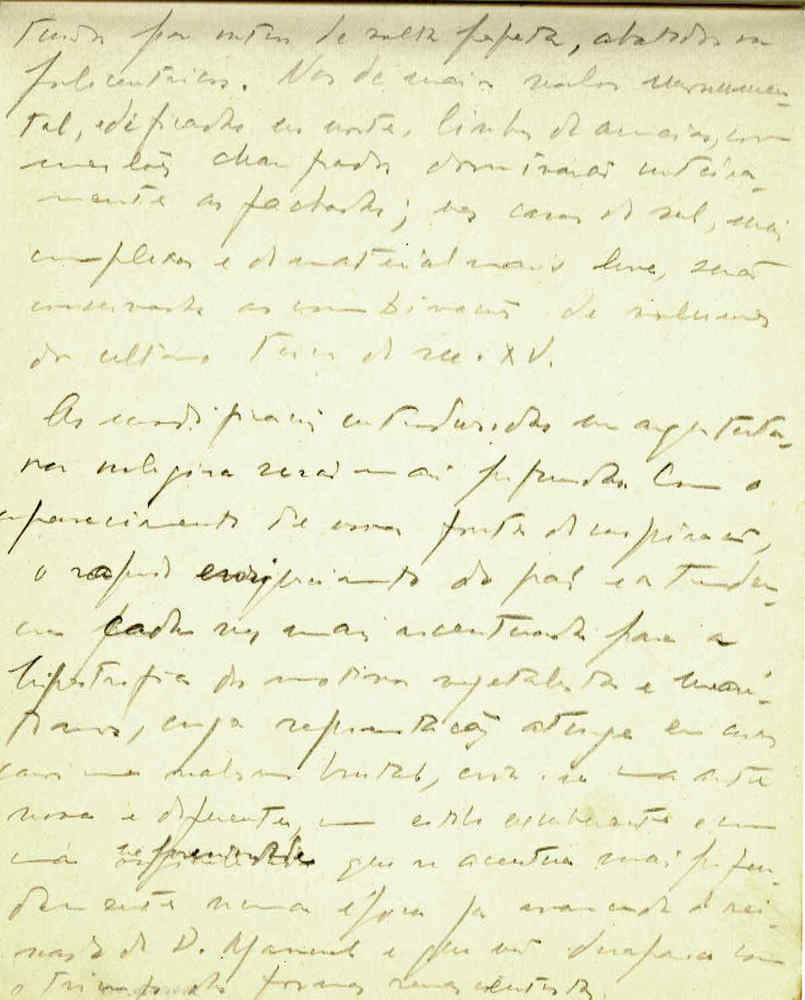 por de volta perfeita, abatidos ou
policentricos. Nos de maior valor monumen-
tal, edificados no norte, linhas de ameias, com
merlões chanfrados dominarão inteira-
mente as fachadas; nas casas do sul, mais
complexas e de material mais leve, serão
conservadas as combinações de volumes
do ultimo terço do sec. XV.
As modificações introduzidas na arquitectu-
ra religiosa serão mais profundas. Com o
aparecimento de novas fontes de inspiração,
o rapido enriquecimento do país e a tenden-
cia cada vez mais acentuada para a
hipertrofia dos motivos vegetalistas e marí-
timos, cuja representação atinge em certos
casos um realismo brutal, cria-se uma arte
nova e diferente, um estilo exuberante com
uma que se acentua mais profun-
damente numa época já avançada do rei-
nado de D. Manuel e que vai desaparecer com
o triunfo das formas renascentistas.